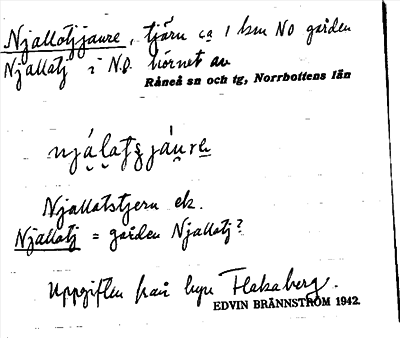 Njallotjjaure, tjärn ca 1 km NO gården
Njallatj i N.Ö. hörnet av
Råneå sn och tg, Norrbottens län
njálatjjáure
Njallatstjern ek.
Njallatj = gården Njallatj?
Uppgiften från byn Flakaberg.
EDVIN BRÄNNSTRÖM 1942.